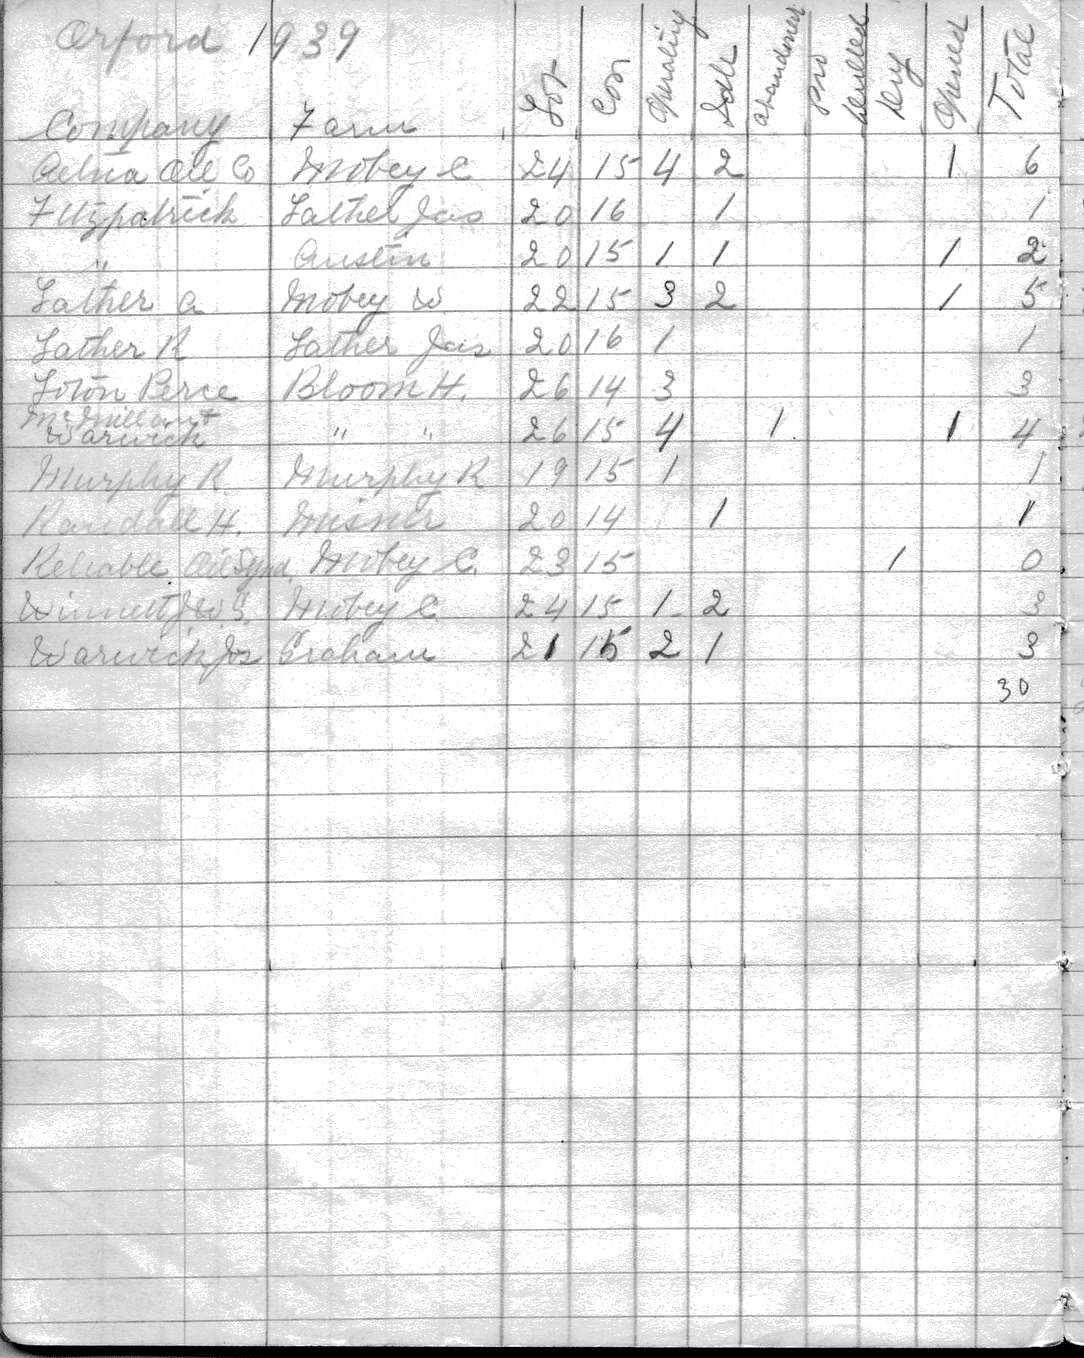 Orford 1939
Company Farm Lot Con Operating Idle Abandoned Pro Drilled Dry Opened Total
Aetna Oil Co Mobey C 24 15 4 2 1 6
Fitzpatrick Lather Jas 20 16 1 1
" Austin 20 15 1 1 1 2
Lather A Mobey W 22 15 3 2 1 5
Lather R Lather Jas 20 16 1 1
Loton Perce Bloom H. 26 14 3 3
McMillan +
Warwick " " 26 15 4 1 1 4
Murphy R Murphy R 19 15 1 1
Randall H. Misner 20 14 1 1
Reliable Oil Synd. Mobey C. 23 15 1 0
Winnett J.W.S. Mobey C 24 15 1 2 3
Warwick Jos Graham 21 15 2 1 3
30